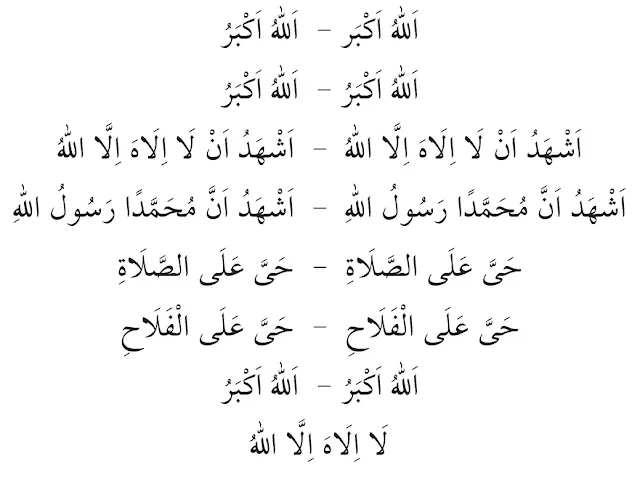 اَللهُ اَكْبَر – اَللهُ اَكْبَرُ
اَللهُ اَكْبَرُ – اَللهُ اَكْبَرُ
اَشْهَدُ اَنْ لَا اِلَاهَ اِلَّا اللهُ – اَشْهَدُ اَنْ لَا اِلَاهَ اِلَّا اللهُ
اَشْهَدُ اَنَّ مُحَمَّدًا رَسُولُ اللهِ – اَشْهَدُ اَنَّ مُحَمَّدًا رَسُولُ اللهِ
حَىَّ عَلَى الصَّلَاةِ – حَىَّ عَلَى الصَّلَاةِ
حَىَّ عَلَى الْفَلَاحِ – حَىَّ عَلَى الْفَلَاحِ
اَللهُ اَكْبَرُ – اَللهُ اَكْبَرُ
لَا اِلَاهَ اِلَّا اللهُ